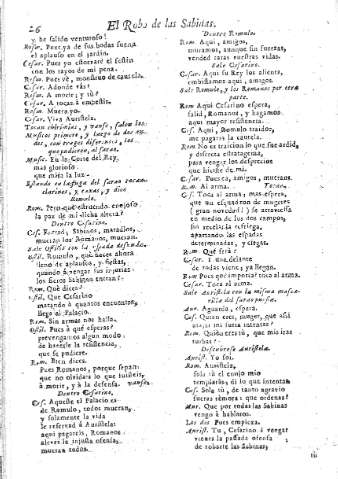 26 El Robo de las Sabinas.
y he salido venturoso!
Rosar. Pues ya de sus bodas suena
el aplauso en el jardin.
Cesar. Pues yo estorbaré el festin
con los rayos de mi pena.
Rosar. Pues vé, monstruo de
Cesar. Adonde vás?
Rosar. A morir; y tú?
Cesar. A tocar á
Rosar. Muera yo.
Cesar. Viva Auristela.
Tocan chirimias, y vanse, salen los
Musicos primero, y luego de dos en
dos, con trages diferentes, los
que pudieren, al sarao.
Music. En la Corte del Rey,
mas glorioso
que mira la luz
Estando en la fuga del sarao tocan
clarines, y caxas, y dice
Romulo.
Rom. Pero qué estruendo enojoso
la paz de mi dicha altera?
Dentro Cesarino.
Ces. Torned, Sabinos, matadlos,
mueran los Romanos, mueran.
Sale Ostilio con la espada desnuda.
Ostil. Romulo, qué haces ahora
lleno de aplausos, y fiestas,
quando á vengar sus injurias
los fieros Sabinos entran?
Rom. Qué dices?
Ostil. Que Cesarino
matando á quantos encuentra,
llegó al Palacio.
Rom. Sin armas nos halla.
Ostil. Pues á qué esperas?
prevengamos algun modo
de hacerle la resistencia,
que se pudiere.
Rom. Bien dices.
Pues Romanos, porque sepan
que no olvidara lo que
á morir, y á la defensa. vanse.
Dentro Cesarino.
Ces. Aqueste el Palacio es
de Romulo, todos mueran,
y solamente la vida
se reserve á Auristela:
aqui pagareis, Romanos,
aleves la injusta ofensa,
mueran todos.
Dentro Romulo.
Rom. Aqui, amigos,
muramos, aunque sin fuerzas,
vended caras vuestras vidas.
Sale Cesarino.
Cesar. Aqui su Rey los alienta,
embistamos aqui, amigos.
Sale Romulo, y los Romanos por otra
parte.
Rom. Aqui Cesarino espera,
salid, Romanos, y hagamos
aqui mayor resistencia.
Ces. Aqui, Romulo traidor,
me pagarás la cautela.
Rom. No es traicion lo que fue ardid,
y discreta estratagema,
para vengar los desprecios
que hiciste de mi.
Cesar. Pues ea, amigos, mueran.
Rom. Al arma. Tocan.
Ces. Toca al arma; mas espera,
que un esquadron de mugeres
(gran novedad!) se atraviesa
en medio de los dos campos,
sin recelar la refriega,
apartando las espadas
determinadas, y ciegas.
Rom. Qué será?
Cesar. una delante
de todas viene, ya llegan.
Rom. Pues qué importa? toca al arma.
Cesar. Toca al arma.
Sale Auristela con la misma
del sarao puesta.
Aur. Aguarda, espera.
Ces. Quien eres, muger, que asi
mi furia intentas?
Rom. Quién eres tú, que mis iras
turbas?
Descubrese Auristela.
Aurist. Yo soi.
Rom. Auristela,
solo tú el enojo mio
templarás, di lo que intentas.
Ces. Solo tú, de tanto agravio
fueras rémora: que ordenas?
Aur. Que por todas las Sabinas
vengo á hablaros.
Los dos. Pues empieza.
Aurist. Tú, Cesarino, á vengar
vienes la pasada ofensa
de robarte las Sabinas,